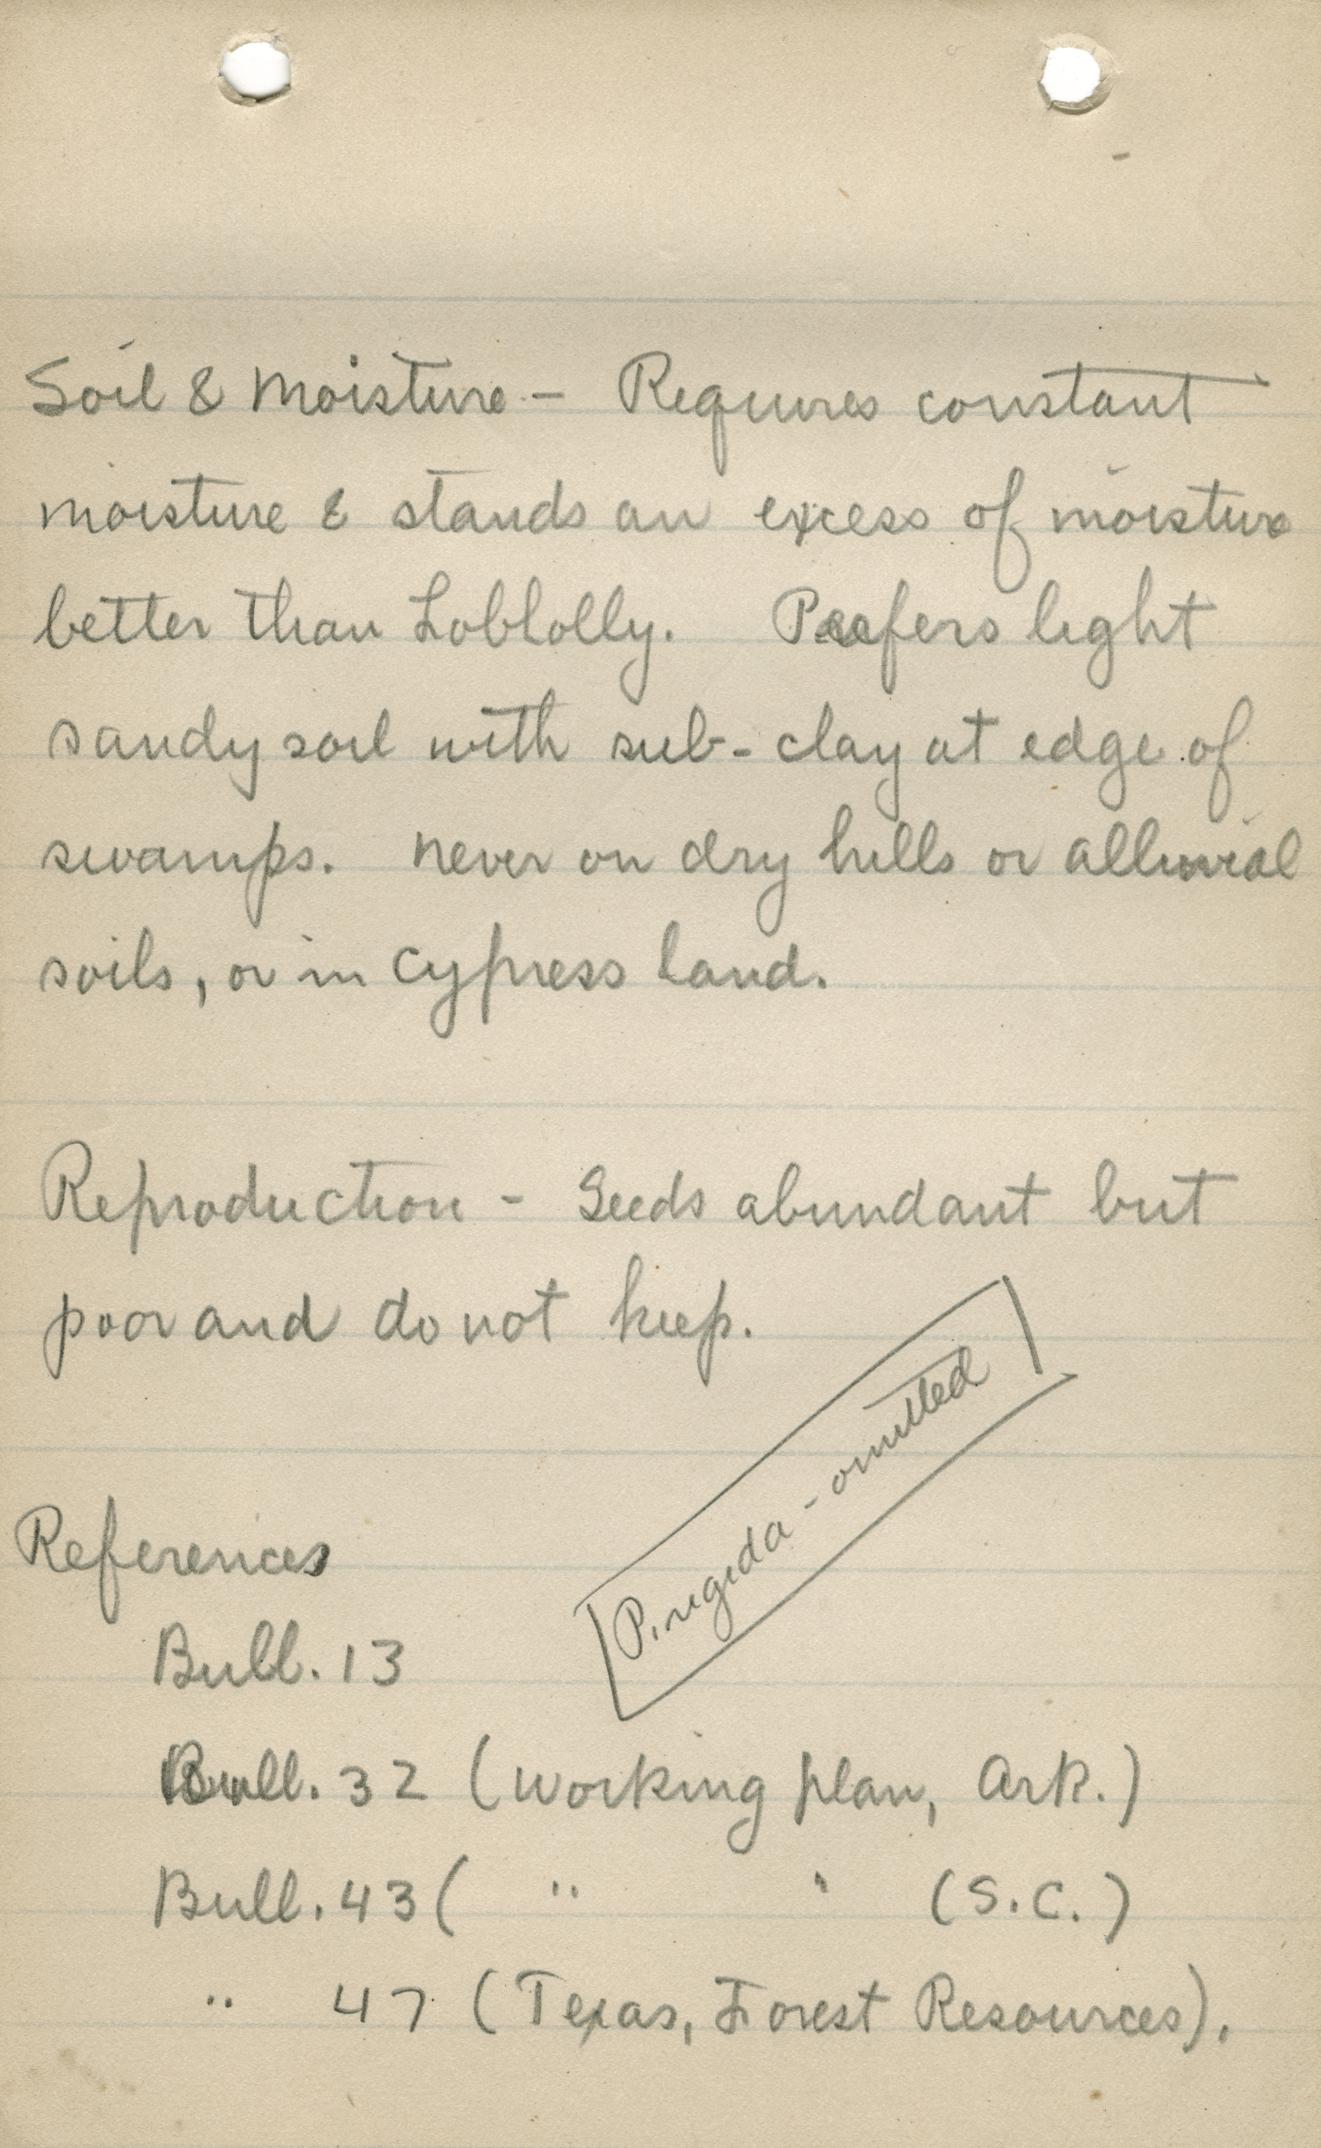 Soil & Moisture - Requires constant
moisture & stands an excess of moisture
better than Loblolly. Prefers light
sandy soil with sub-clay at edge of
swamps. never on dry hills or alluvial
soils, or in Cypress land.
Reproduction - Seeds abundant but
poor and do not keep.
P. rigida - omitted
References
Bull. 13
Bull. 32 (Working plan, Ark.)
Bull. 43 ( " " (S.C.)
" 47 (Texas, Forest Resources).